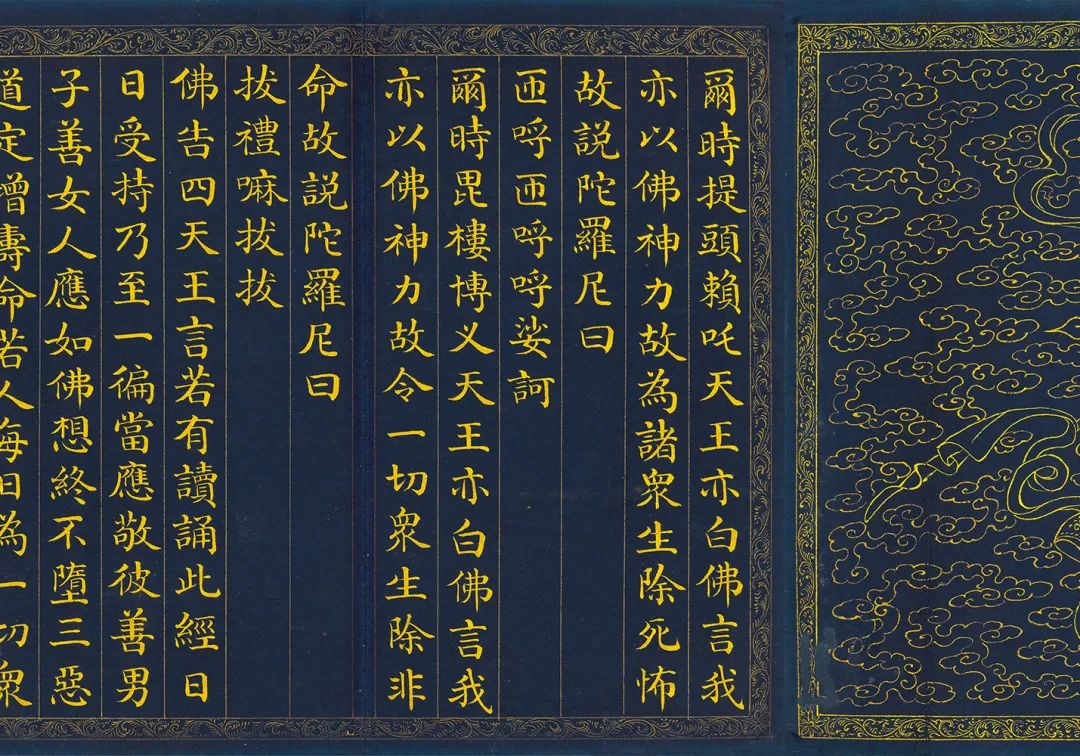 爾時提頭賴吒天王亦白佛言我
亦以佛神力故為諸眾生除死怖
故説陀羅尼曰
匝呼匝呼呼娑訶
爾時毘樓博义天王亦白佛言我
亦以佛神力故令一切眾生除非
命故説陀羅尼曰
拔禮嘛拔拔
佛告四天王言若有讀誦此經日
日受持乃至一徧當應敬彼善男
子善女人應如佛想終不墮三惡
道定增壽命若人每日為一切眾